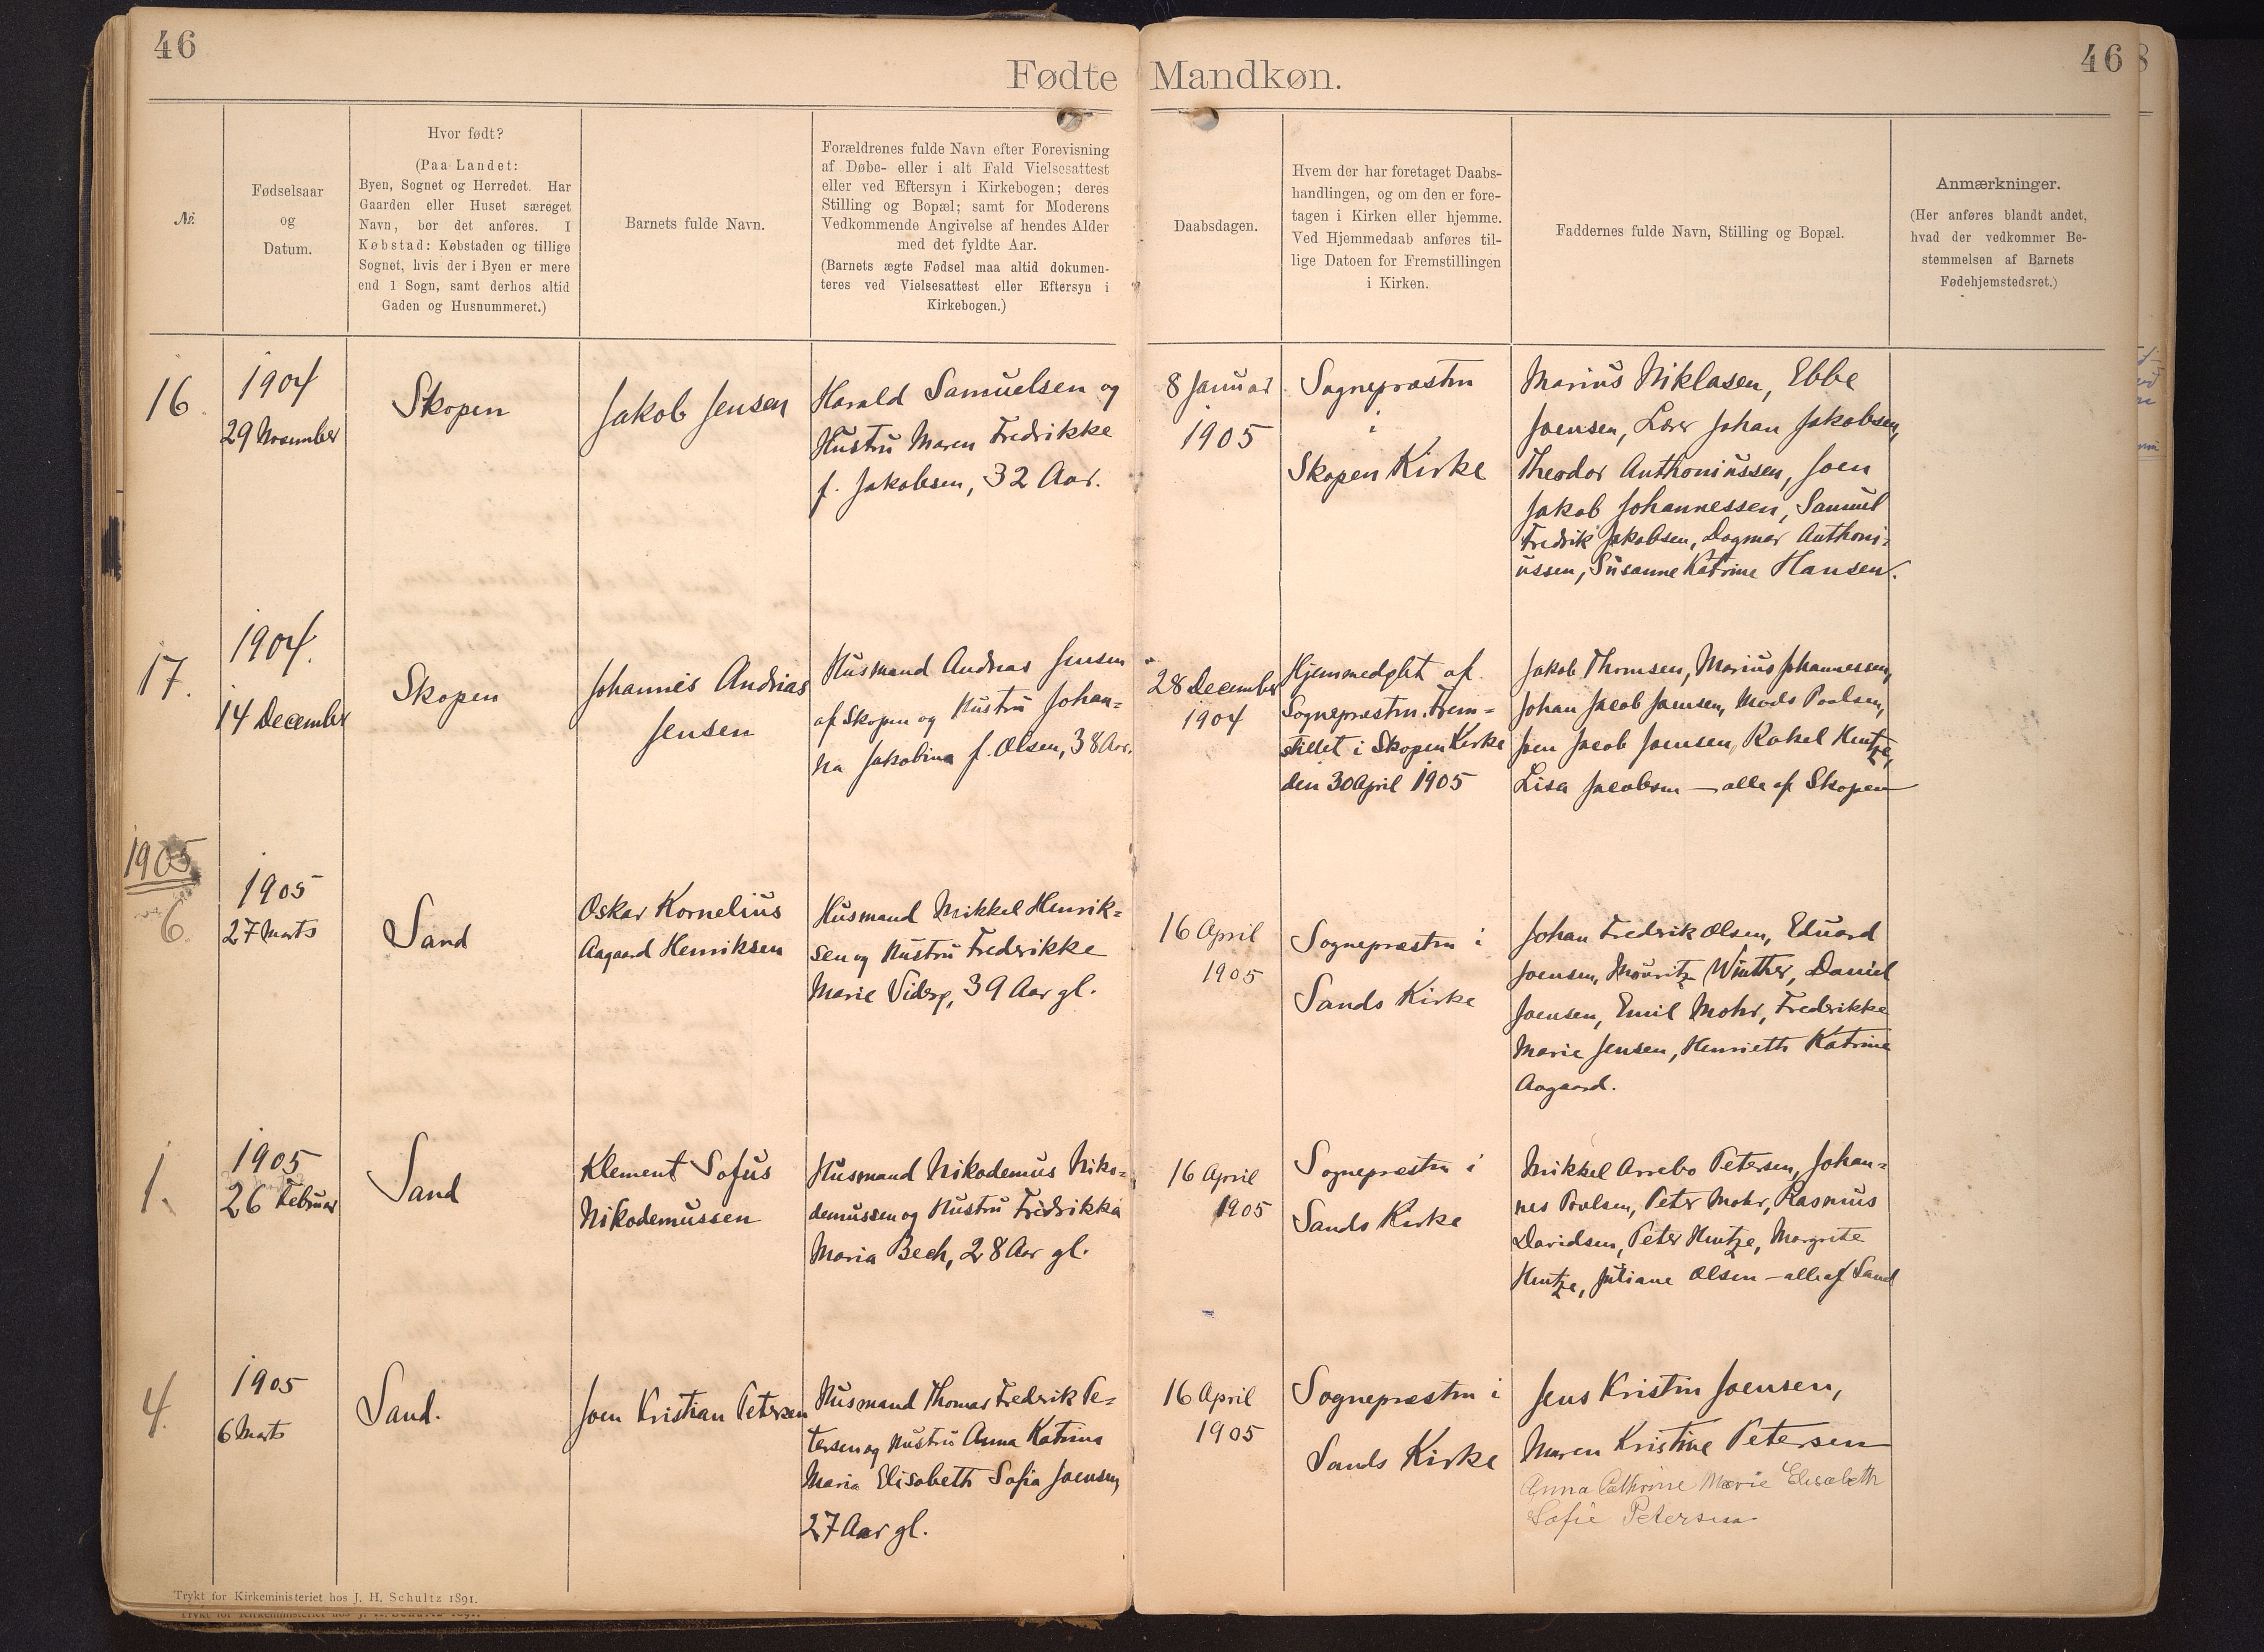 46
46
8
Fødte Mandkøn.
№
Fødselsaar
og
Datum.
Hvor født?
(Paa Landet:
Byen, Sognet og Herredet. Har
Gaarden eller Huset særeget
Navn, bør det anføres. I
Købstad: Købstaden og tillige
Sognet, hvis der i Byen er mere
end 1 Sogn, samt derhos altid
Gaden og Husnummeret.)
Barnets fulde Navn.
Forældrenes fulde Navn efter Forevisning
af Døbe- eller i alt Fald Vielsesattest
eller ved Eftersyn i Kirkebogen; deres
Stilling og Bopæl; samt for Moderens
Vedkommende Angivelse af hendes Alder
med det fyldte Aar.
(Barnets ægte Fødsel maa altid dokumen-
teres ved Vielsesattest eller Eftersyn i
Kirkebogen.)
Daabsdagen.
Hvem der har foretaget Daabs-
handlingen, og om den er fore-
tagen i Kirken eller hjemme.
Ved Hjemmedaab anføres til-
lige Datoen for Fremstillingen
i Kirken.
Faddernes fulde Navn, Stilling og Bopæl.
Anmærkninger.
(Her anføres blandt andet,
hvad der vedkommer Be-
stemmelsen af Barnets
Fødehjemstedsret.)
16.
1904
29 November
Skopen
Jakob Jensen
Harald Samuelsen og
Hustru Maren Fredrikke
f. Jakobsen, 32 Aar.
8 Januar
1905
Sognepræsten
i
Skopen Kirke
Marius Niklasen, Ebbe
Joensen, Lærer Johan Jakobsen,
Theodor Anthoniussen, Joen
Jakob Johannessen, Samuel
Fredrik Jakobsen, Dagmar Anthoni=
ussen, Susanne Katrine Hansen.
17.
1904.
14 December
Skopen
Johannis Andrias
Jensen
Husmand Andreas Jensen
af Skopen og Hustru Johan=
na Jakobina f. Olsen, 38 Aar.
28 December
1904
Hjemmedøbt af
Sognepræsten. Frem=
stillet i Skopen Kirke
den 30 April 1905
Jakob Thomsen, Marius Johannessen,
Johan Jacob Joensen, Mads Poulsen,
Joen Jacob Joensen, Rakel Hentze,
Lisa Jacobsen — alle af Skopen
1905
6.
1905
27 Marts
Sand
Oskar Kornelius
Aagaard Henriksen
Husmand Mikkel Henrik=
sen og Hustru Frederikke
Marie Viderø, 39 Aar gl.
16 April
1905
Sognepræsten i
Sands Kirke
Johan Fredrik Olsen, Eduard
Joensen, Mouritz Winther, Daniel
Joensen, Emil Mohr, Frederikke
Marie Jensen, Henriette Katrine
Aagaard.
1.
1905
26 Februar
Sand
Klement Sofus
Nikodemussen
Husmand Nikodemus Niko=
demussen og Hustru Fridrikka
Maria Bech, 28 Aar gl.
16 April
1905
Sognepræsten i
Sands Kirke
Mikkel Arrebo Petersen, Johan=
nes Poulsen, Peter Mohr, Rasmus
Davidsen, Peter Hentze, Margrete
Hentze, Juliane Olsen — alle af Sand
4.
1905
6 Marts
Sand.
Joen Kristian Petersen
Husmand Thomas Frederik Pe=
tersen og Hustru Anna Katrina
Maria Elisabeth Sofia Joensen,
27 Aar gl.
16 April
1905
Sognepræsten i
Sands Kirke
Jens Kristin Joensen,
Maren Kristine Petersen
Anna Cathrine Marie Elisabeth
Sofie Petersen
Trykt for Kirkeministeriet hos J. H. Schultz 1891.
Trykt for Kirkeministeriet hos J. H. Schultz 1891.